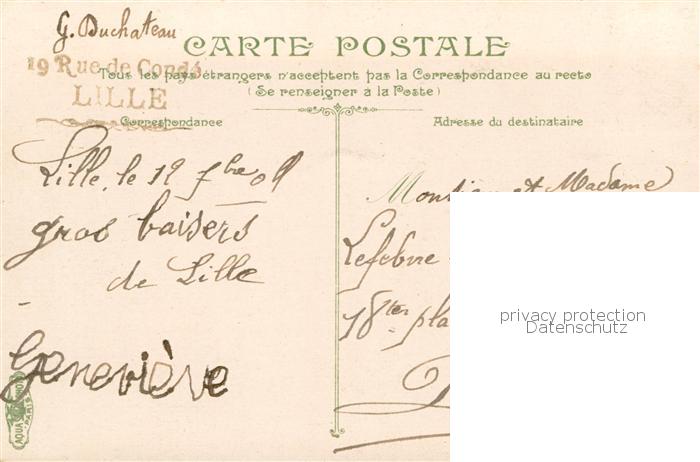 G. Duchateau
CARTE POSTALE
19 Rue de Condé
Tous les pays étrangers n'acceptent pas la Correspondance au recto
LILLE
(Se renseigner à la Poste)
Correspondance
Adresse du destinataire
Lille, le 19 7bre 09
gros baisers
de Lille
Geneviève
Monsieur et Madame
Lefebvre
18ter pla
privacy protection
Datenschutz
AQUA PHOTO
PARIS